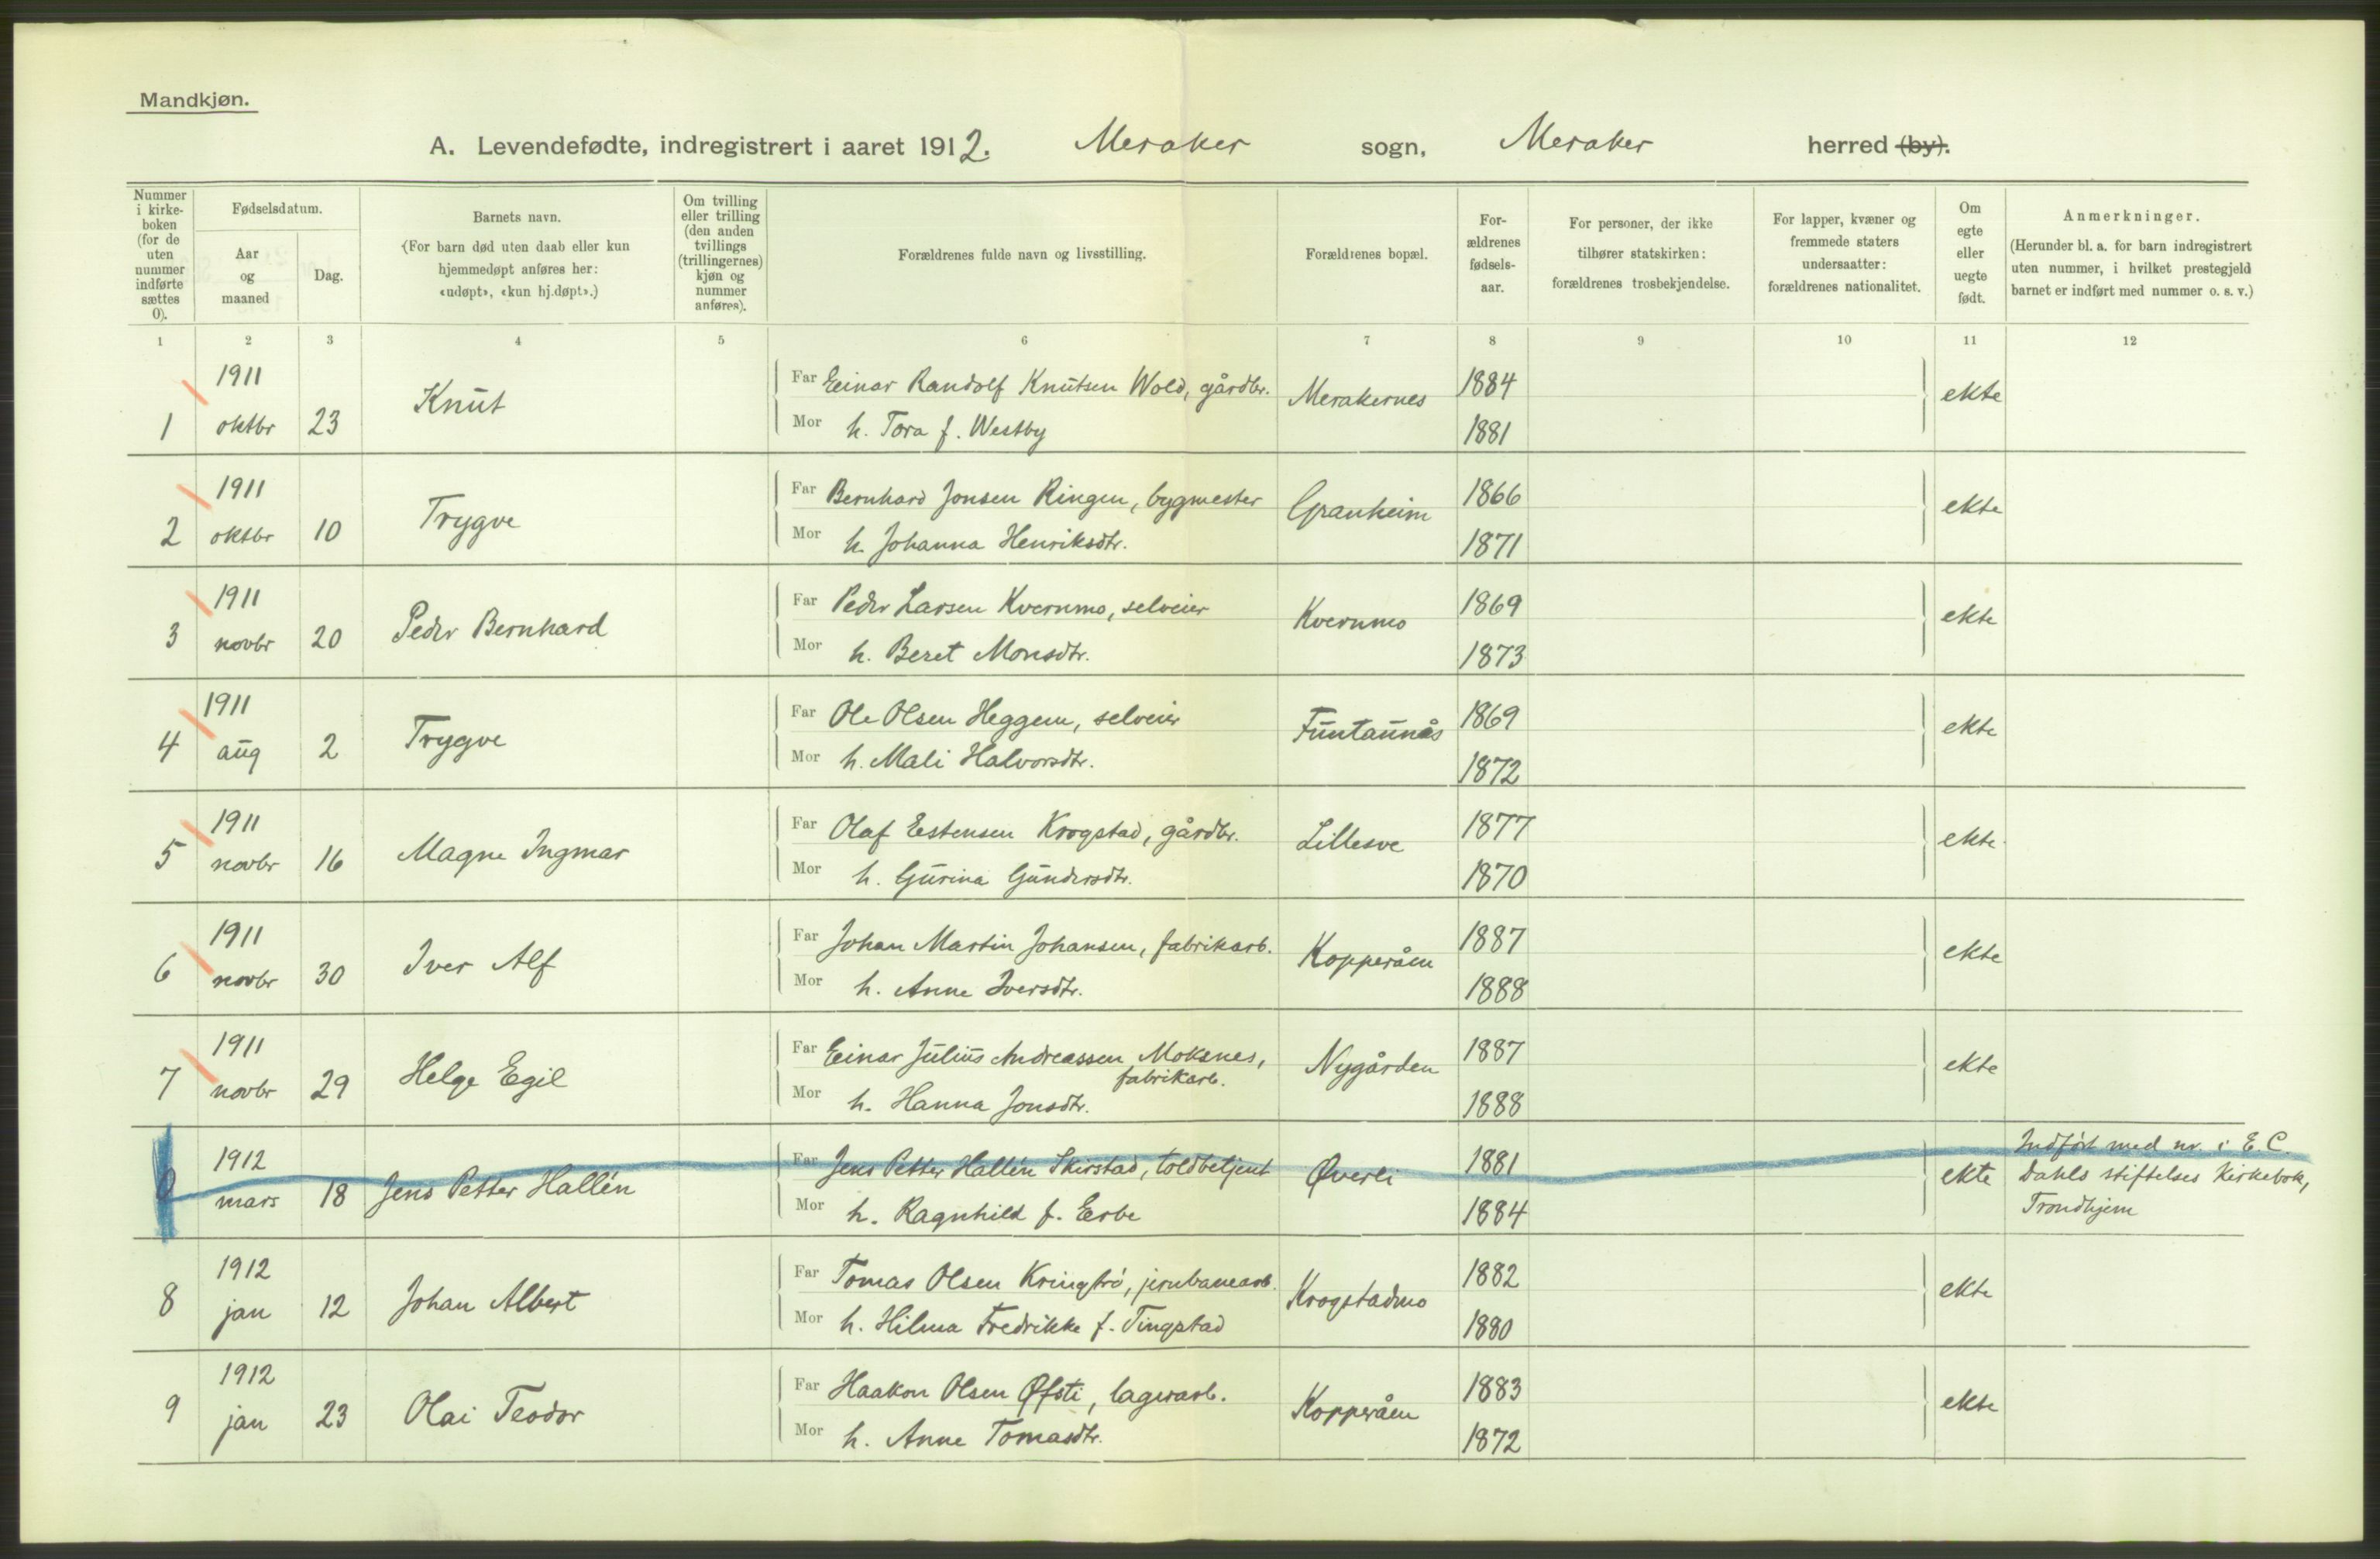 Mandkjøn.
A. Levendefødte, indregistrert i aaret 1912. Meraker sogn, Meraker herred (by).
Nummer i kirkeboken (for de uten nummer indførte sættes 0).
Fødselsdatum.
Aar og maaned
Dag.
Barnets navn.
(For barn død uten daab eller kun hjemmedøpt anføres her: «udøpt», «kun hj.døpt».)
Om tvilling eller trilling (den anden tvillings (trillingernes) kjøn og nummer anføres).
Forældrenes fulde navn og livsstilling.
Forældrenes bopæl.
Forældrenes fødselsaar.
For personer, der ikke tilhører statskirken: forældrenes trosbekjendelse.
For lapper, kvæner og fremmede staters undersaatter: forældrenes nationalitet.
Om egte eller uegte født.
Anmerkninger.
(Herunder bl. a. for barn indregistrert uten nummer, i hvilket prestegjeld barnet er indført med nummer o. s. v.)
1 2 3 4 5 6 7 8 9 10 11 12
1 1911 oktbr 23 Knut Far Einar Randolf Knutsen Wold, gårdbr. Merakernes 1884 ekte
Mor h. Tora f. Westby 1881
2 1911 oktbr 10 Trygve Far Bernhard Jonsen Ringen, bygmester Granheim 1866 ekte
Mor h. Johanna Henriksdtr. 1871
3 1911 novbr 20 Peder Bernhard Far Peder Larsen Kvernmo, selveier Kvernmo 1869 ekte
Mor h. Beret Monsdtr. 1873
4 1911 aug 2 Trygve Far Ole Olsen Heggem, selveier Funtaunås 1869 ekte
Mor h. Mali Halvorsdtr. 1872
5 1911 novbr 16 Magne Ingmar Far Olaf Estensen Krogstad, gårdbr. Lillesve 1877 ekte
Mor h. Gurina Gundersdtr. 1870
6 1911 novbr 30 Iver Alf Far Johan Martin Johansen, fabrikarb. Kopperåen 1887 ekte
Mor h. Anne Iversdtr. 1888
7 1911 novbr 29 Helge Egil Far Einar Julius Andreassen Moksnes, fabrikarb. Nygården 1887 ekte
Mor h. Hanna Jonsdtr. 1888
0 1912 mars 18 Jens Petter Hallén Far Jens Petter Hallén Skirstad, toldbetjent Øverli 1881 ekte Indført med nr. i E. C. Dahls stiftelses Kirkebok, Trondhjem
Mor h. Ragnhild f. Erbe 1884
8 1912 jan 12 Johan Albert Far Tomas Olsen Kringlrö, jernbanearb. Krogstadmo 1882 ekte
Mor h. Hilma Fredrikke f. Tingstad 1880
9 1912 jan 23 Olai Teodor Far Haakon Olsen Øfsti, lagerarb. Kopperåen 1883 ekte
Mor h. Anne Tomasdtr. 1872